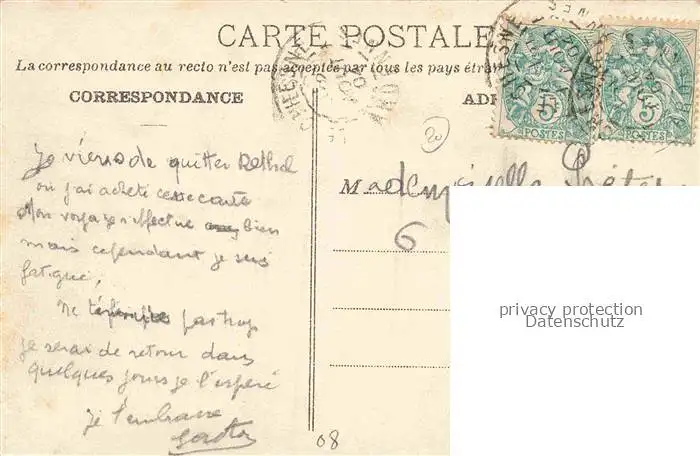 CARTE POSTALE
La correspondance au recto n'est pas acceptée par tous les pays étran
CORRESPONDANCE
ADR
5 POSTES
5 POSTES
20
Je viens de quitter Rethel
où j'ai acheté cette carte
Mon voyage s'effectue bien
mais cependant je suis
fatigué,
Ne pas trop
je serai de retour dans
quelques jours je l'espère
Je t'embrasse
Mademoiselle
6
08
privacy protection
Datenschutz